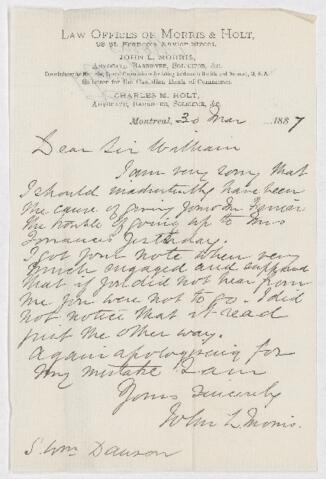 LAW OFFICES OF MORRIS & HOLT,
JOHN L. MORRIS,
ADVOCATE, BARRISTER, SOLICITOR, &c.
Solicitor for the Canadian Bank of Commerce.
CHARLES M. HOLT,
ADVOCATE, BARRISTER, SOLICITOR, &c.
Montreal, 30 Mar 1887
Dear Sir William
I am very sorry that
I should inadvertently have been
the cause of giving
the trouble of going up to Mrs
Torrances yesterday.
I got your note when very
much engaged and supposed
that if you did not hear from
me you were not to go. I did
not notice that it read
just the other way.
Again apologising for
my mistake I am
Yours sincerely
John L. Morris.
S. Wm Dawson